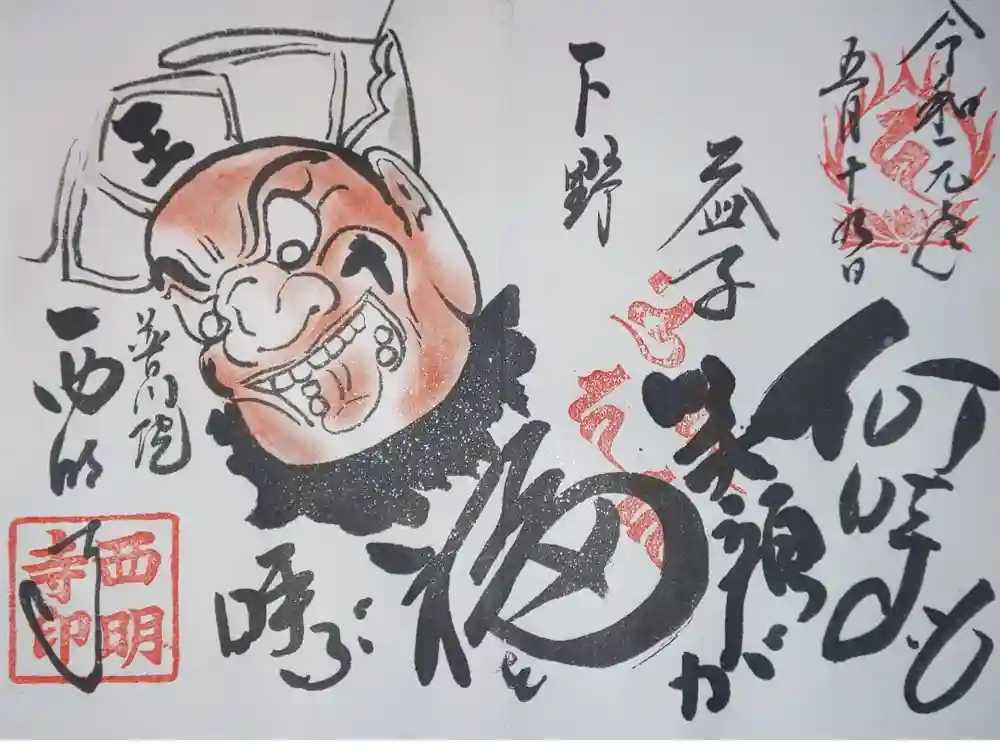 令和元年
五月十九日
何時も
笑顔が
福を
呼ぶ
益子
下野
王
普門院
西明寺
西明
寺印